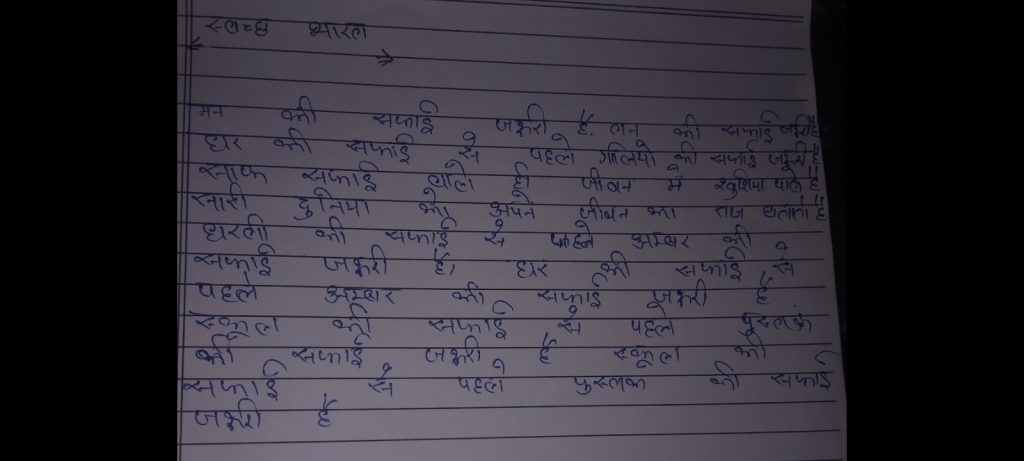 स्वच्छ भारत
मन की सफाई जरूरी है. तन की सफाई जरूरी है
घर की सफाई से पहले गलियो की सफाई जरूरी है
साफ सफाई वाले ही जीवन मे खुशिया पाते है
सारी दुनिया को अपने जीवन का राज बताते है
धरती की सफाई से पहले अम्बर की
सफाई जरूरी है। घर की सफाई से
पहले अम्बर की सफाई जरूरी है
स्कूल की सफाई से पहले पुस्तक
की सफाई जरूरी है स्कूल की
सफाई से पहले पुस्तक की सफाई
जरूरी है